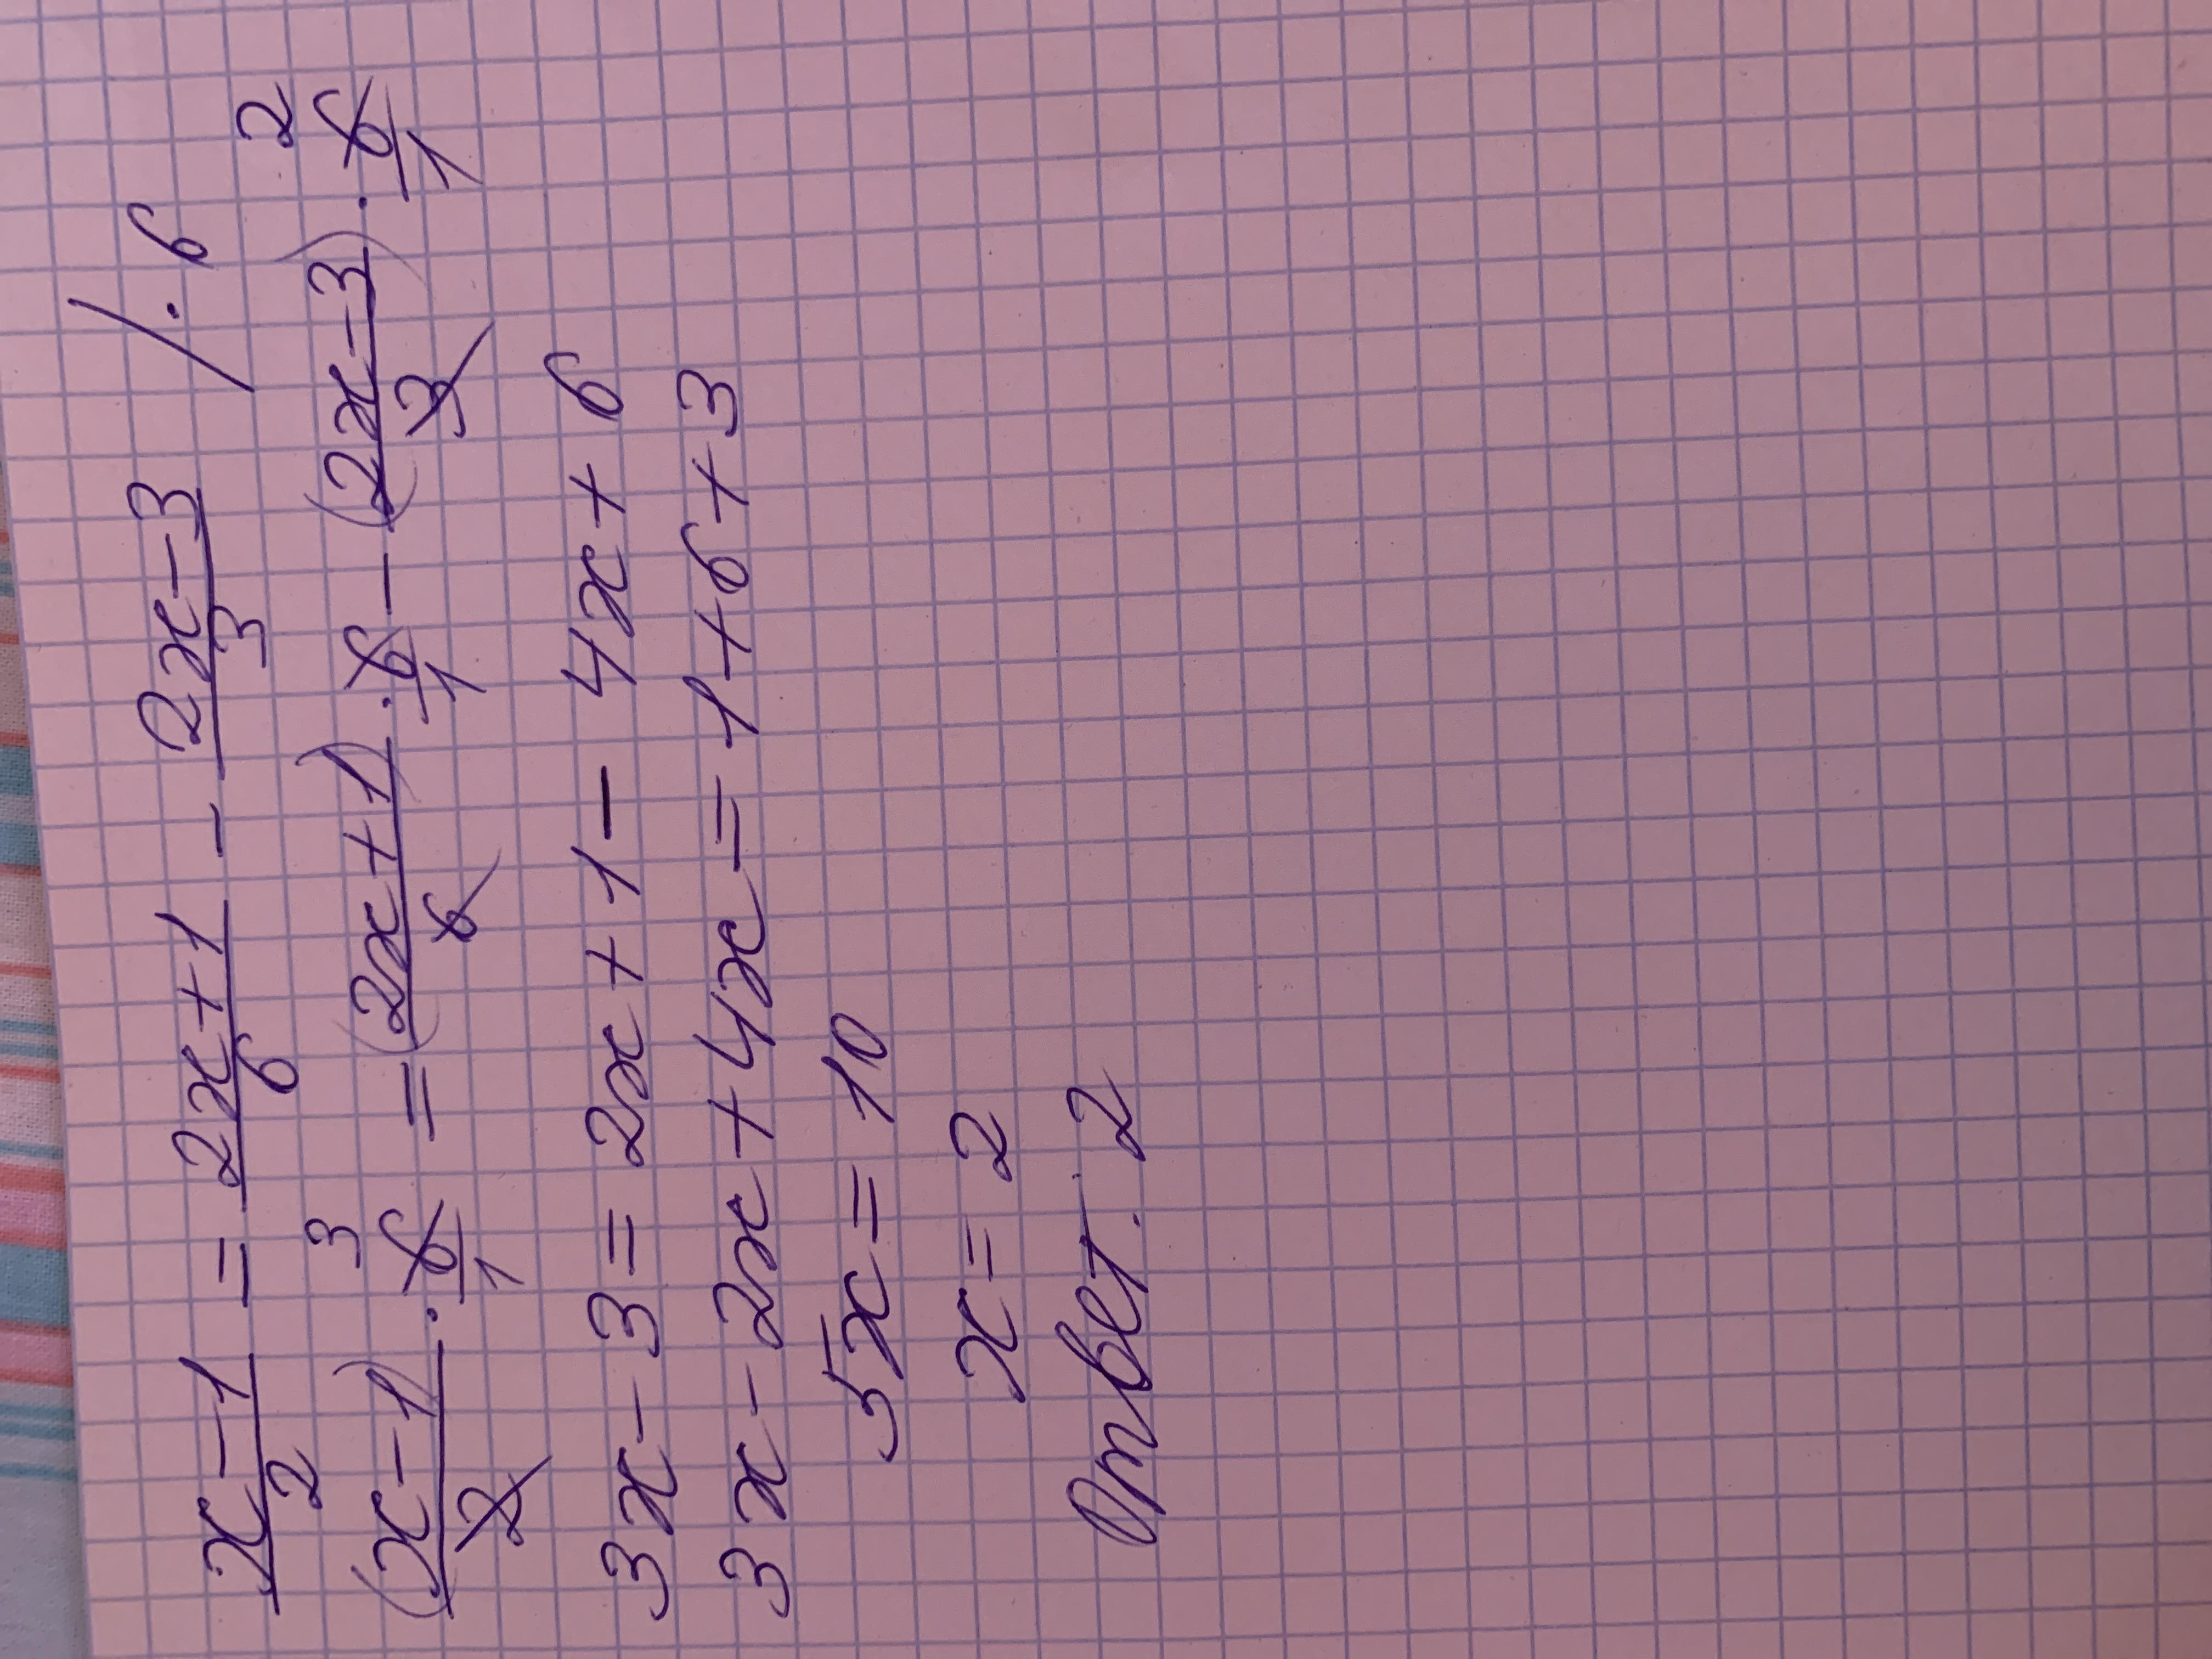 x-1/2 = 2x+1/6 - 2x-3/3 /·6
(x-1)/2 · 6/1 3 = (2x+1)/6 · 6/1 - (2x-3)/3 · 6/1 2
3x-3 = 2x+1- 4x+6
3x-2x+4x = 1+6+3
5x=10
x=2
Ответ: 2